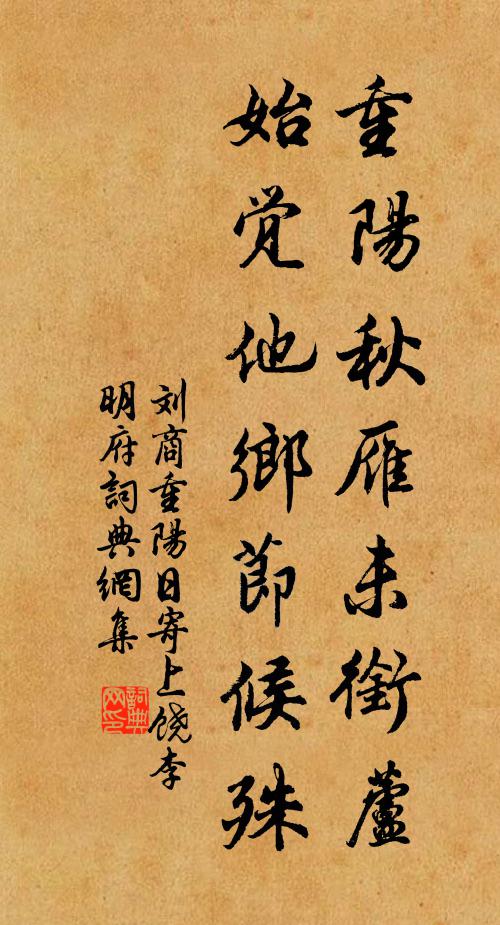 重陽秋雁未銜蘆
始觉他鄉節候殊
刘商重陽日寄上饶李
明府詞典網集
詞典
网印